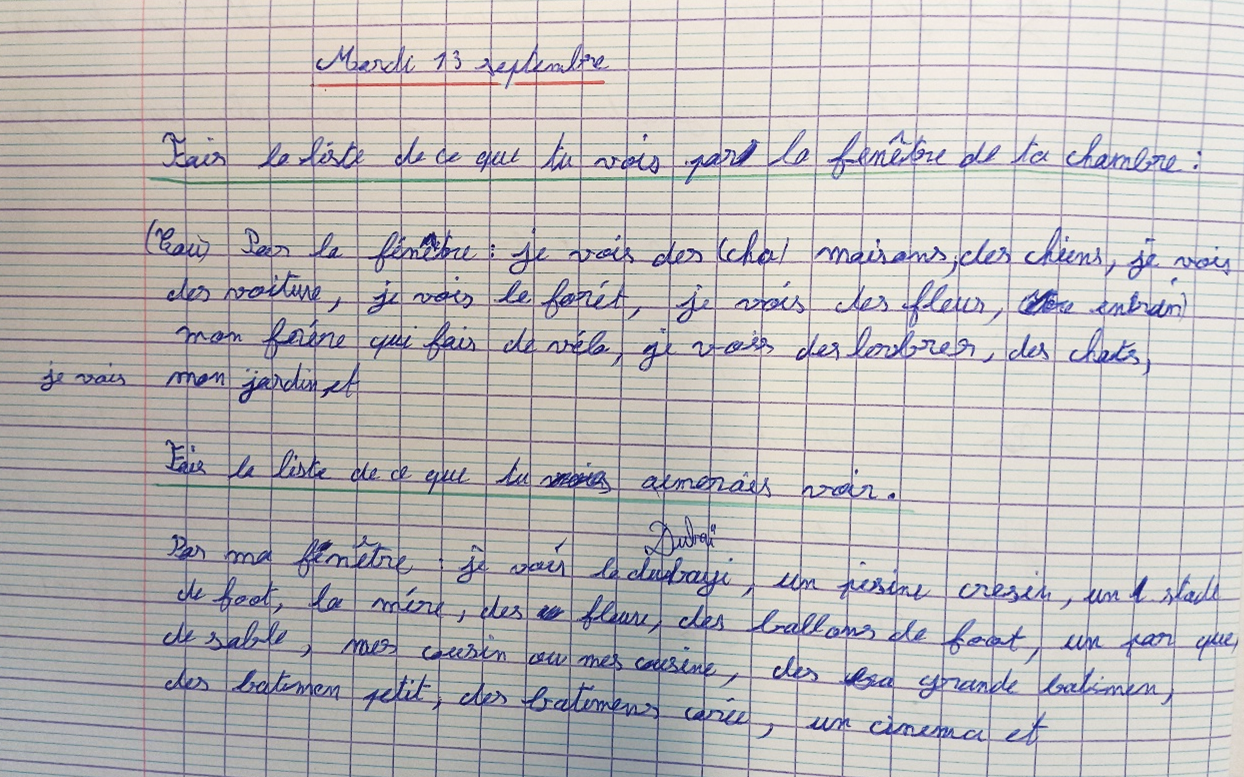 Mardi 13 septembre
Fais la liste de ce que tu vois par la fenêtre de ta chambre :
Par la fenêtre : je vois des (cha) maisons, des chiens, je vois
des voiture, je vois le forêt, je vois des fleur, entrain
mon frére qui fais de vélo, je vois des des chats,
je vois mon jardin, et
Fais la liste de ce que tu aimerais voir.
Dubaï
Par ma fenêtre : je vois le dubayi, un pisine cresin, un stade
de foot, la mére, des fleure, des ballons de foot, un par que
de sable, mes cousin ou mes cousine, des grande batimen,
des batimen petit, des batimens carée, un cinema et